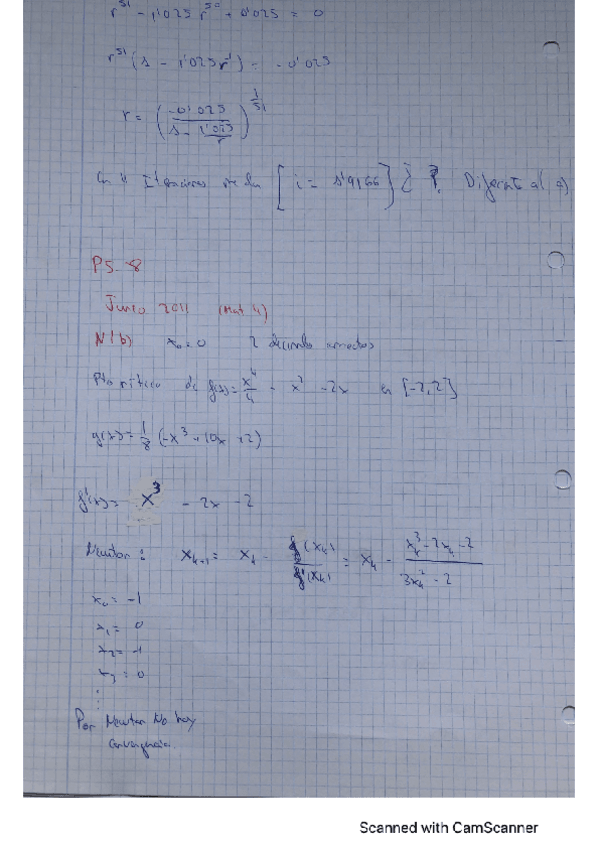 r^51 - 1'025 r^50 + 0'025 = 0
r^51 (1 - 1'025 r^-1) = -0'025
r = (-0'025 / (1 - 1'025/r))^(1/51)
[i = 1'9166] ¿ ? Diferente al a)
P5-8
Junio 2011 (Mat 4)
N1b) x₀ = 0 2 decimales correctos
Pto crítico de f(x) = x^4/4 - x² - 2x en [-2,2]
g(x) = 1/8 (-x³ + 10x + 2)
f'(x) = x³ - 2x - 2
Newton: x_{k+1} = x_k - f(x_k)/f'(x_k) = x_k - (x_k³ - 2x_k - 2)/(3x_k² - 2)
x₀ = -1
x₁ = 0
x₂ = -1
x₃ = 0
⋮
Por Newton No hay
convergencia
Scanned with CamScanner